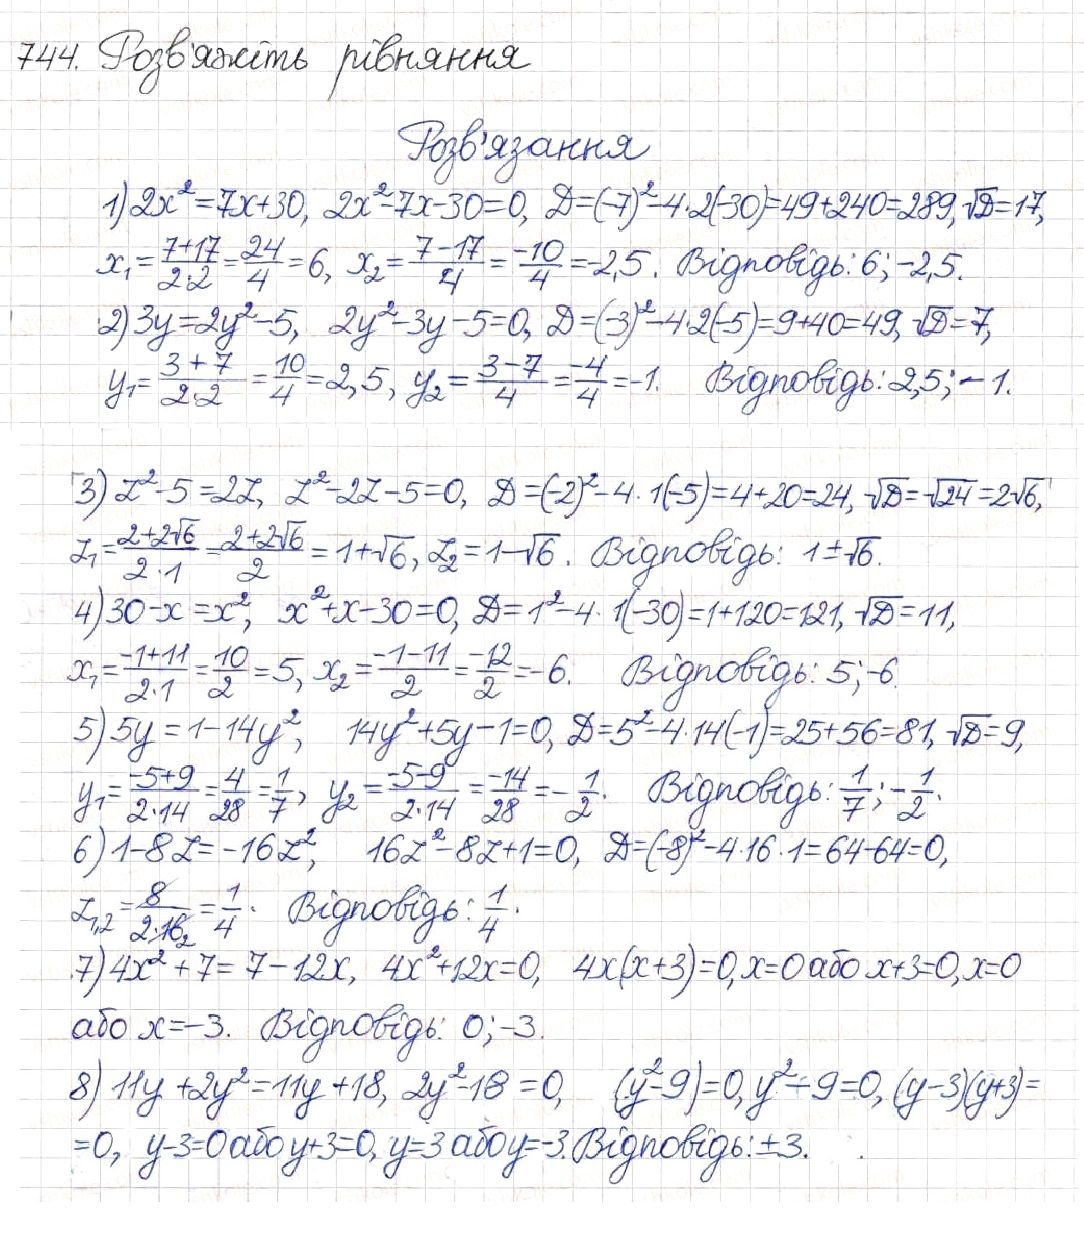 744. Розв'яжіть рівняння
Розв'язання
1) 2x² = 7x+30, 2x²-7x-30=0, D=(-7)²-4·2(-30)=49+240=289, √D=17,
x₁ = (7+17)/(2·2) = 24/4 = 6, x₂ = (7-17)/4 = -10/4 = -2,5. Відповідь: 6; -2,5.
2) 3y=2y²-5, 2y²-3y-5=0, D=(-3)²-4·2(-5)=9+40=49, √D=7,
y₁ = (3+7)/(2·2) = 10/4 = 2,5, y₂ = (3-7)/4 = -4/4 = -1. Відповідь: 2,5; -1.
3) z²-5=2z, z²-2z-5=0, D=(-2)²-4·1(-5)=4+20=24, √D=√24=2√6,
z₁ = (2+2√6)/(2·1) = (2+2√6)/2 = 1+√6, z₂=1-√6. Відповідь: 1±√6.
4) 30-x=x², x²+x-30=0, D=1²-4·1(-30)=1+120=121, √D=11,
x₁ = (-1+11)/(2·1) = 10/2 = 5, x₂ = (-1-11)/2 = -12/2 = -6. Відповідь: 5; -6.
5) 5y=1-14y², 14y²+5y-1=0, D=5²-4·14(-1)=25+56=81, √D=9,
y₁ = (-5+9)/(2·14) = 4/28 = 1/7, y₂ = (-5-9)/(2·14) = -14/28 = -1/2. Відповідь: 1/7; -1/2.
6) 1-8z=-16z², 16z²-8z+1=0, D=(-8)²-4·16·1=64-64=0,
z₁,₂ = 8/(2·16₂) = 1/4. Відповідь: 1/4.
7) 4x²+7=7-12x, 4x²+12x=0, 4x(x+3)=0, x=0 або x+3=0, x=0
або x=-3. Відповідь: 0; -3.
8) 11y+2y²=11y+18, 2y²-18=0, (y²-9)=0, y²-9=0, (y-3)(y+3)=
=0, y-3=0 або y+3=0, y=3 або y=-3. Відповідь: ±3.